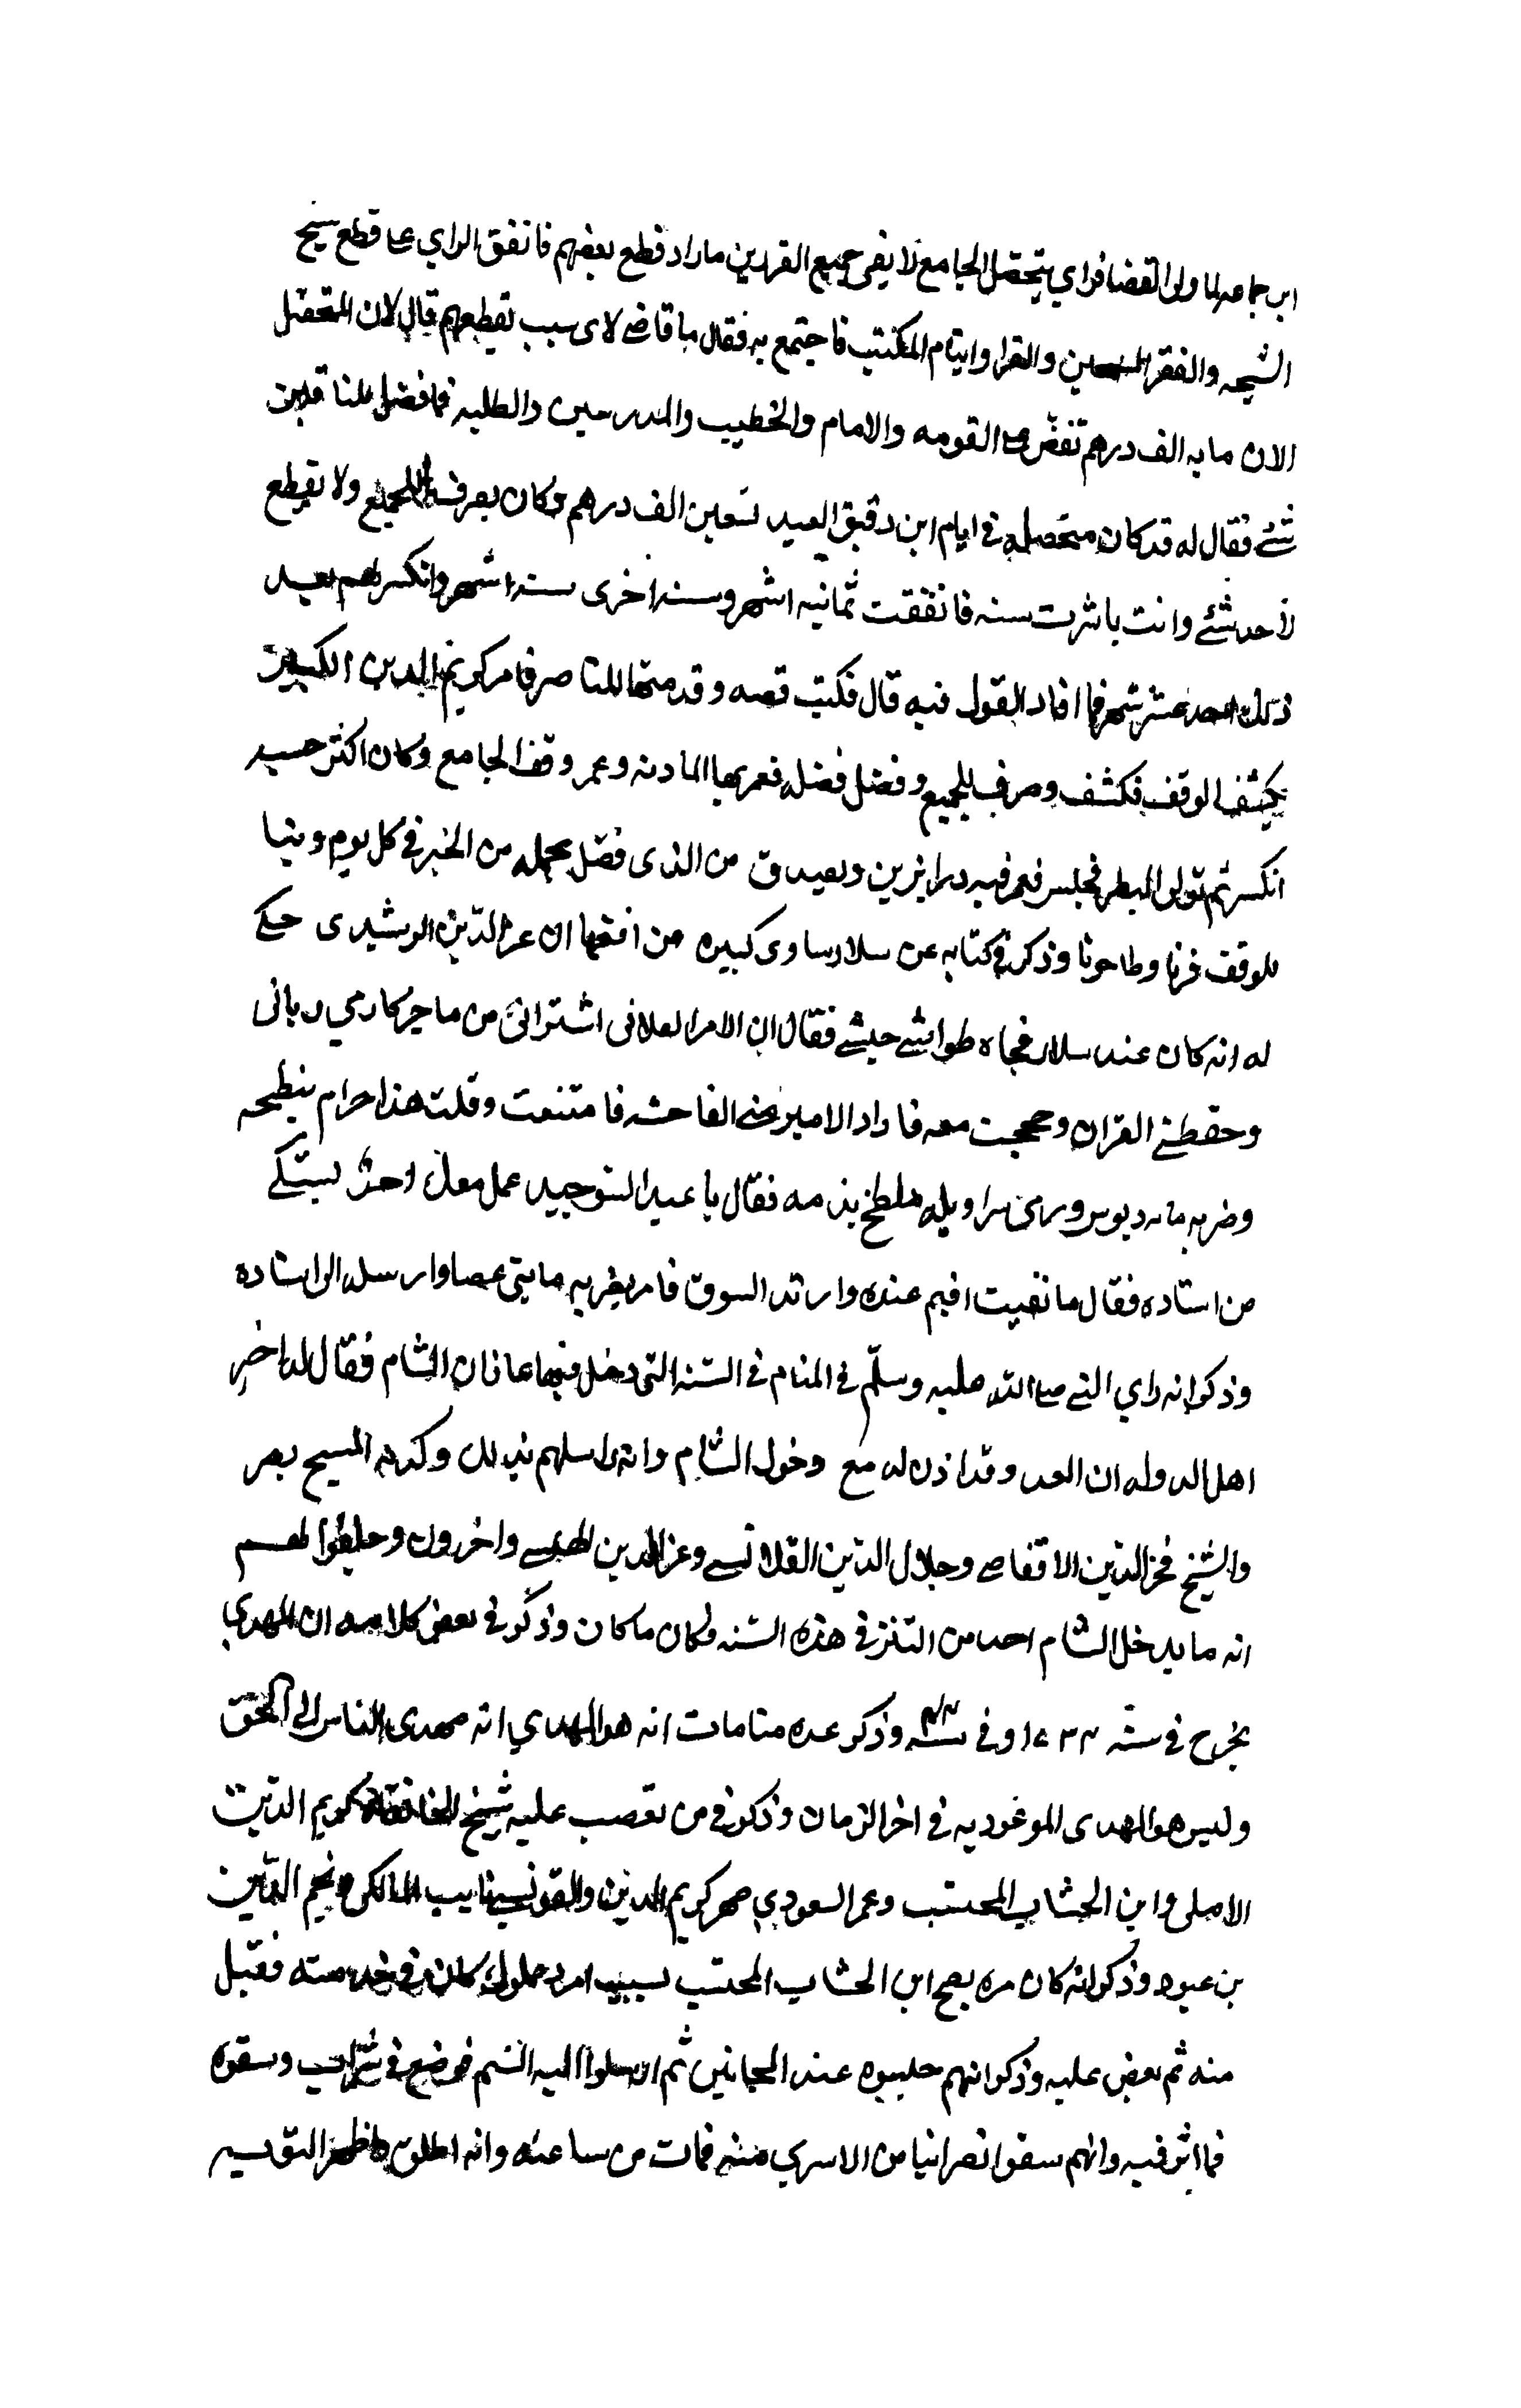 ابن جماعه لما ولى القضا فراي يتحصل الجامع لا يفي جميع القررين فاراد قطع بعضهم فاتفق الراي على قطع سبح
الشيحه والفقرا والقرا وايتام المكتب فاجتمع به فقال يا قاضي لاى سبب تقطعهم قال لان المتحصل
الان مايه الف درهم تفضى القومه والامام والخطيب والمدرسين والطلبه فما فضل قلنا قدين
شئ فقال له قد كان متحصله في ايام ابن دقيق العيد تسعين الف درهم وكان يصرف للجميع ولا يقطع
لاحد شئ وانت باشرت سنه فانفقت ثمانيه اشهر وسنه اخرى سته اشهر وانكسر لهم بعد
ذلك احد عشر شهر فما افاد القول فيه قال فكتب قصه وقدمتها للناصر فامر كريم الدين الكبير
بكشف الوقف فكشف وصرف للجميع وفضل فضله فعمر بها المادنه وعمر وقف الجامع وكان اكثر حسيد
انكسر ثم تولى فجلس فعمر فيه درابزين وبصدق من الذى فضل بجمله من الخبز في كل يوم وبنا
للوقف فرنا وطاحونا وذكر في كتابه عن سلار مساوى كبيره من افقها ان عز الدين الرشيدى حكى
له انه كان عند سلار فجاه طواشي حبشي فقال ان الامير العلانى اشترانى من تاجر كارمي رباني
وحفظني القران وحججت معه فاراد الامير مني الفاحشه فامتنعت وقلت هذا حرام فبطحه
وضربه مايه دبوس ورمى سراويله ملطخ بدمه فقال يا عبد السو جيد عمل معك احد يشتكي
من استاده فقال ما بقيت اقيم عنده وارتد السوق فامر بضربه مايتى عصا وارسله الى استاده
وذكر انه راي النبي صلى الله عليه وسلم في المنام في السنه التى دخل فيها غازان الشام فقال له اخبر
اهل الدوله ان العدو قد اذن له مع دخول الشام وانه راسلهم بذلك وكذبه المسيح بصر
والشيخ فخر الدين الاقفاصي وجلال الدين القلانسي وعز الدين واخرون وحلفوا لهم
انه ما يدخل الشام احد من التتر في هذه السنه وكان ما كان وذكر في بعض كلامه ان المهدي
يخرج في سنه ٧٣٤ او في سنه ٤٤ وذكر عده منامات انه هو المهدي انه مهدى الناس الى الحق
وليس هو المهدى الموعود به في اخر الزمان وذكر في من تعصب عليه شيخ الخانقاه كريم الدين
الاملى وابن الخشاب المحتسب وعمر السعودي صهر كريم الدين والقونسي نايب المالكي ونجم الدين
بن عبود وذكر انه كان مره يصح ابن الخشاب المحتسب بسبب امرد مملوك كان في خدمته فقبل
منه ثم بعض عليه وذكر انهم حبسوه عند المجانين ثم ارسلوا اليه السم فوضع في شراب وسقوه
فما اثر فيه وانهم سقوا نصرانيا من الاسرى منه فمات من ساعته وانه اطلق واظهر التوبه